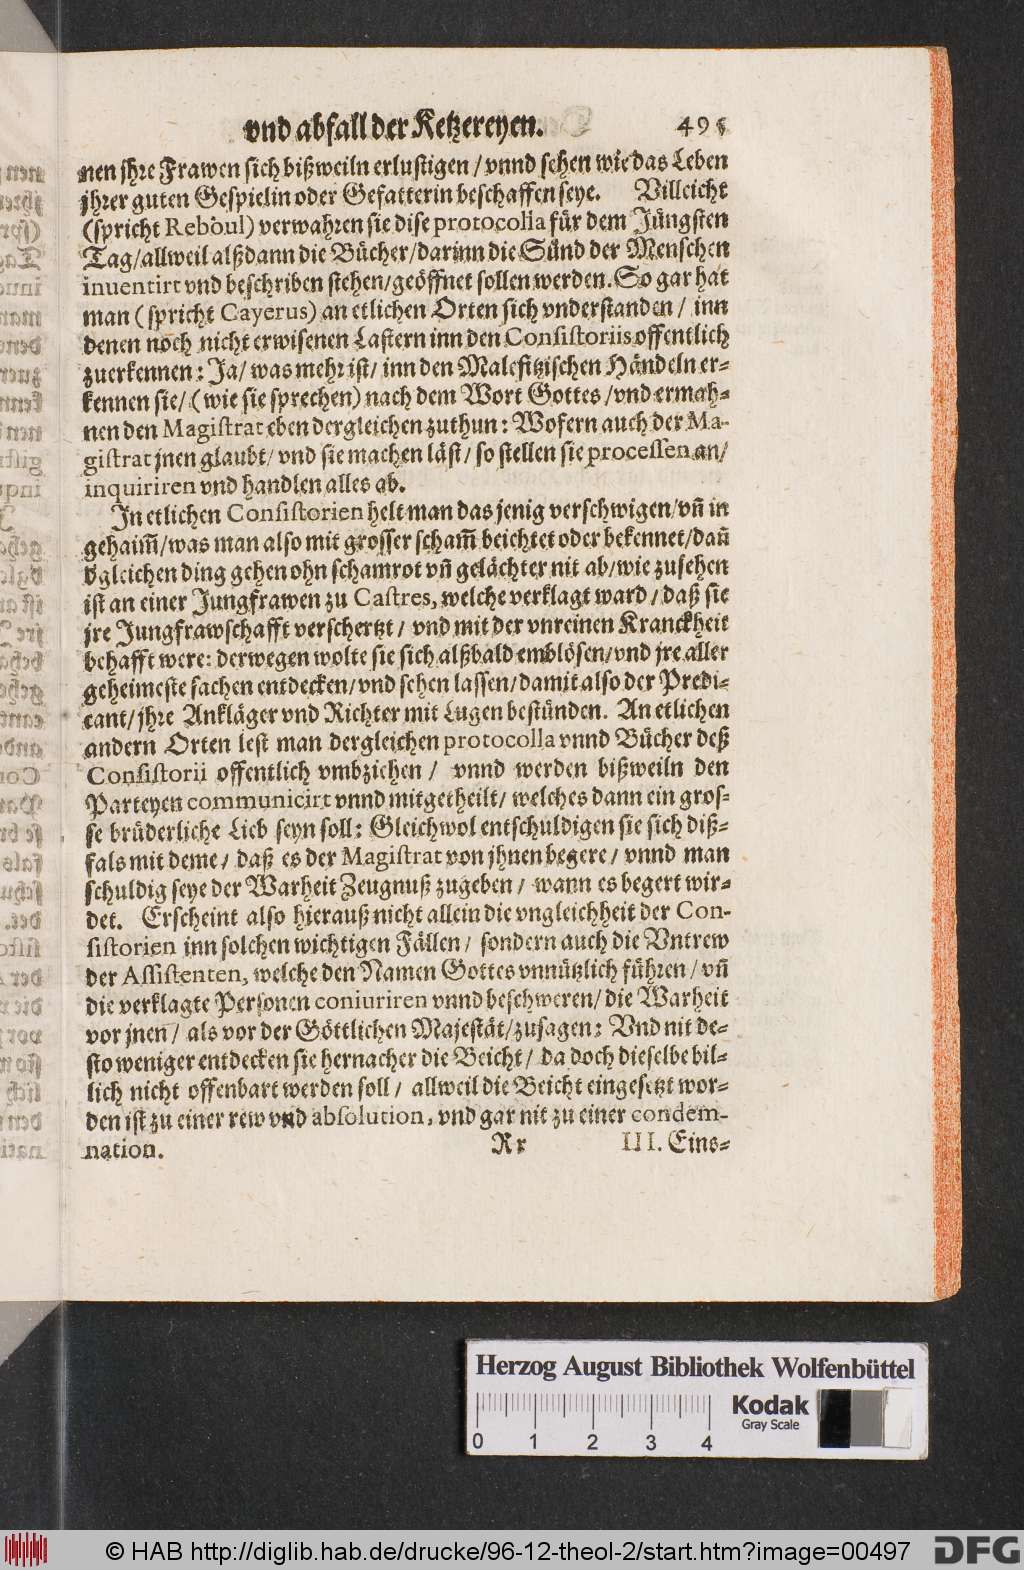 vnd abfall der Ketzereyen. 495
nen jhre Frawen sich bißweiln erlustigen / vnnd sehen wie das Leben
jhrer guten Gespielin oder Gefatterin beschaffen seye. Villeicht
(spricht Reboul) verwahren sie dise protocolla für dem Jüngsten
Tag/allweil alßdann die Bücher/darinn die Sünd der Menschen
inuentirt vnd beschriben stehen/geöffnet sollen werden. So gar hat
man (spricht Cayerus) an etlichen Orten sich vnderstanden / inn
denen noch nicht erwisenen Lastern inn den Consistoriis offentlich
zuerkennen: Ja/ was mehr ist/ inn den Malefitzischen Händeln er-
kennen sie/ (wie sie sprechen) nach dem Wort Gottes /vnd ermah-
nen den Magistrat eben dergleichen zuthun: Wofern auch der Ma-
gistrat jnen glaubt/ vnd sie machen läst/ so stellen sie processen an/
inquiriren vnd handlen alles ab.
In etlichen Consistorien helt man das jenig verschwigen/vñ in
gehaim̃/was man also mit grosser scham̃ beichtet oder bekennet/dañ
dgleichen ding gehen ohn schamrot vñ gelächter nit ab/wie zusehen
ist an einer Jungfrawen zu Castres, welche verklagt ward/daß sie
jre Jungfrawschafft verschertzt / vnd mit der vnreinen Kranckheit
behafft were: derwegen wolte sie sich alßbald emblösen/vnd jre aller
geheimeste sachen entdecken/vnd sehen lassen/damit also der Predi-
cant/jhre Ankläger vnd Richter mit Lugen bestünden. An etlichen
andern Orten lest man dergleichen protocolla vnnd Bücher deß
Consistorii offentlich vmbziehen / vnnd werden bißweiln den
Parteyen communicirt vnnd mitgetheilt/ welches dann ein gros-
se brüderliche Lieb seyn soll: Gleichwol entschuldigen sie sich diß-
fals mit deme/ daß es der Magistrat von jhnen begere/ vnnd man
schuldig seye der Warheit Zeugnuß zugeben / wann es begert wir-
det. Erscheint also hierauß nicht allein die vngleichheit der Con-
sistorien inn solchen wichtigen Fällen/ sondern auch die Vntrew
der Assistenten, welche den Namen Gottes vnnützlich führen / vñ
die verklagte Personen coniuriren vnnd beschweren/ die Warheit
vor jnen/ als vor der Göttlichen Majestät/zusagen: Vnd nit de-
sto weniger entdecken sie hernacher die Beicht/ da doch dieselbe bil-
lich nicht offenbart werden soll/ allweil die Beicht eingesetzt wor-
den ist zu einer rew vnd absolution, vnd gar nit zu einer condem-
nation.
Rr III. Eins-
Herzog August Bibliothek Wolfenbüttel
Kodak
Gray Scale
0 1 2 3 4
© HAB http://diglib.hab.de/drucke/96-12-theol-2/start.htm?image=00497
DFG